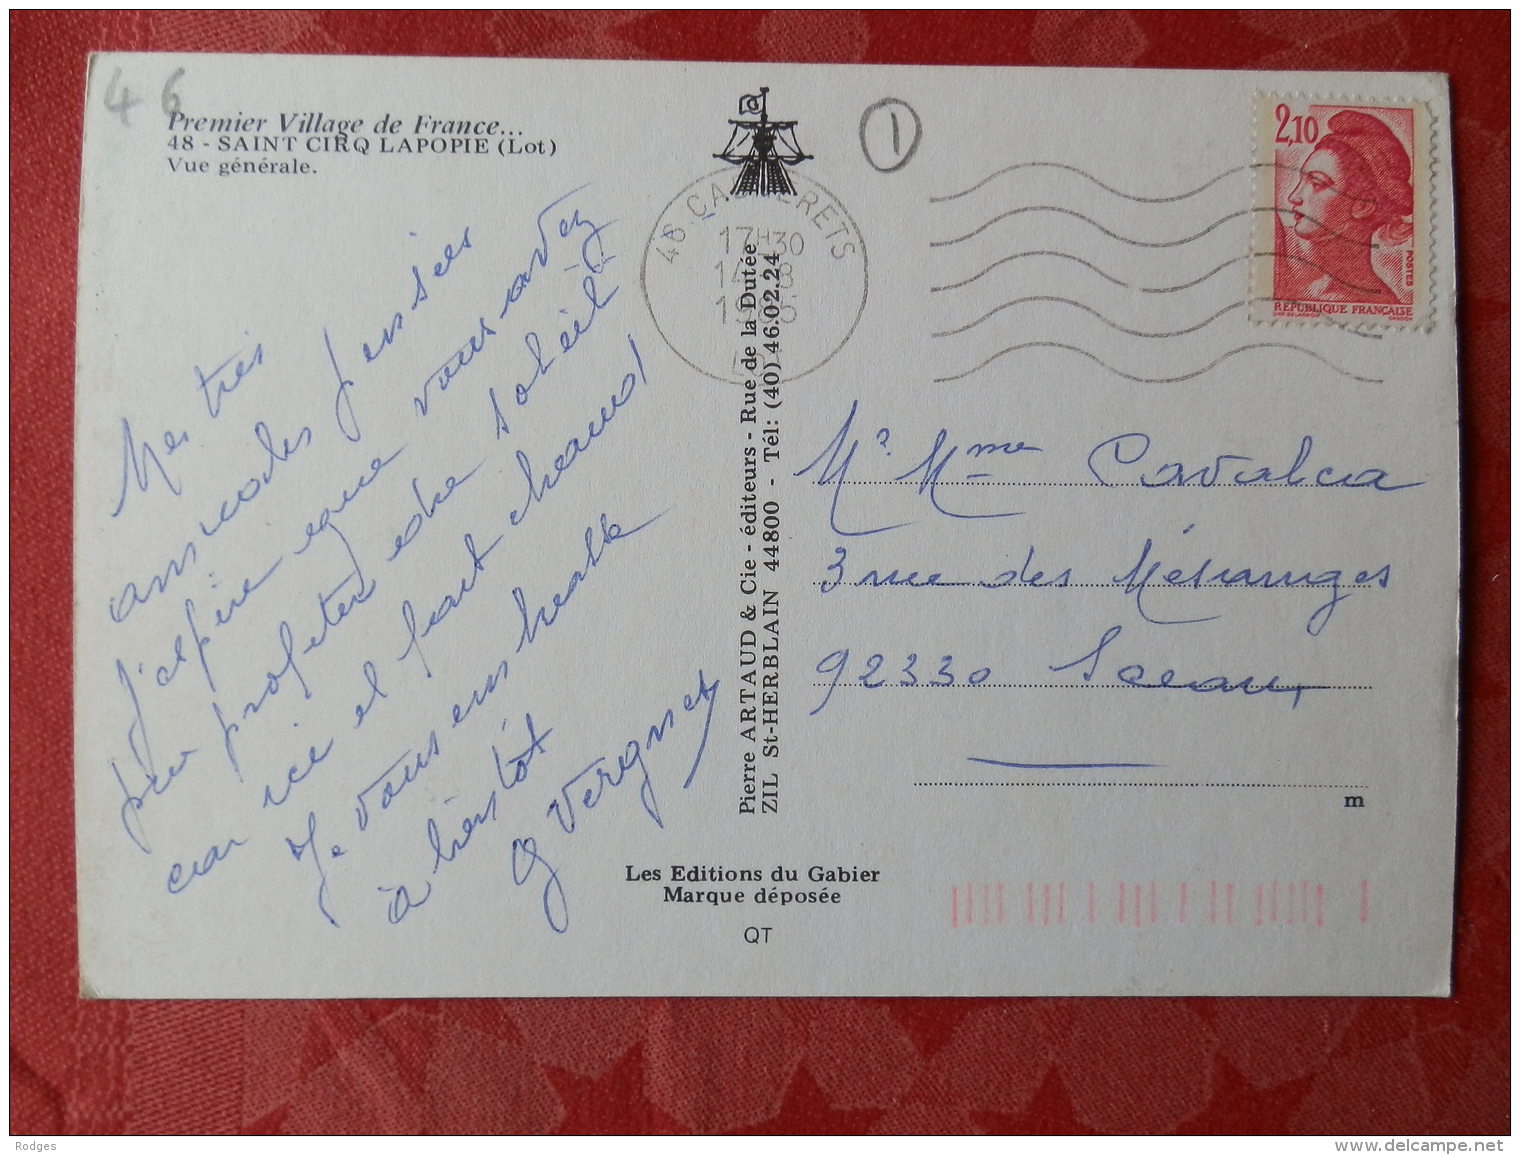 46
Premier Village de France...
48 - SAINT CIRQ LAPOPIE (Lot)
Vue générale.
1
2,10
POSTES
RÉPUBLIQUE FRANÇAISE
17H30
Mes très
amicales pensées
J'espère que vous avez
pu profiter du soleil
car ici il fait chaud
Je vous embrasse
à bientôt
G Vergnet
Pierre ARTAUD & Cie - éditeurs - Rue de la Dutée
ZIL St-HERBLAIN 44800 - Tél: (40) 46.02.24
Mr Mme Cavalcia
3 rue des Mésanges
92330 Sceaux
m
Les Editions du Gabier
Marque déposée
QT
Rodges
delcampe.net